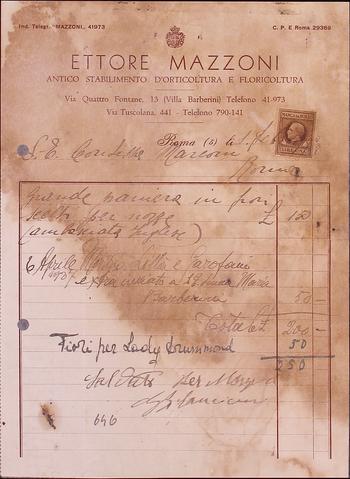 Ind. Telegr. "MAZZONI" 41973
C. P. E Roma 29369
ETTORE MAZZONI
ANTICO STABILIMENTO D'ORTICOLTURA E FLORICOLTURA
Via Quattro Fontane, 13 (Villa Barberini) Telefono 41-973
Via Tuscolana, 441 - Telefono 790-141
Roma (6) li
S. E. Contessa Marconi
Roma
Grande paniera in fiori
scelti per nozze £ 150
(ambasciata Inglese)
6 Aprile e Garofani
a Maria
Barberini 50 -
Totale £ 200 -
Fiori per Lady Drummond 50
250
Saldato per Mazzoni
646